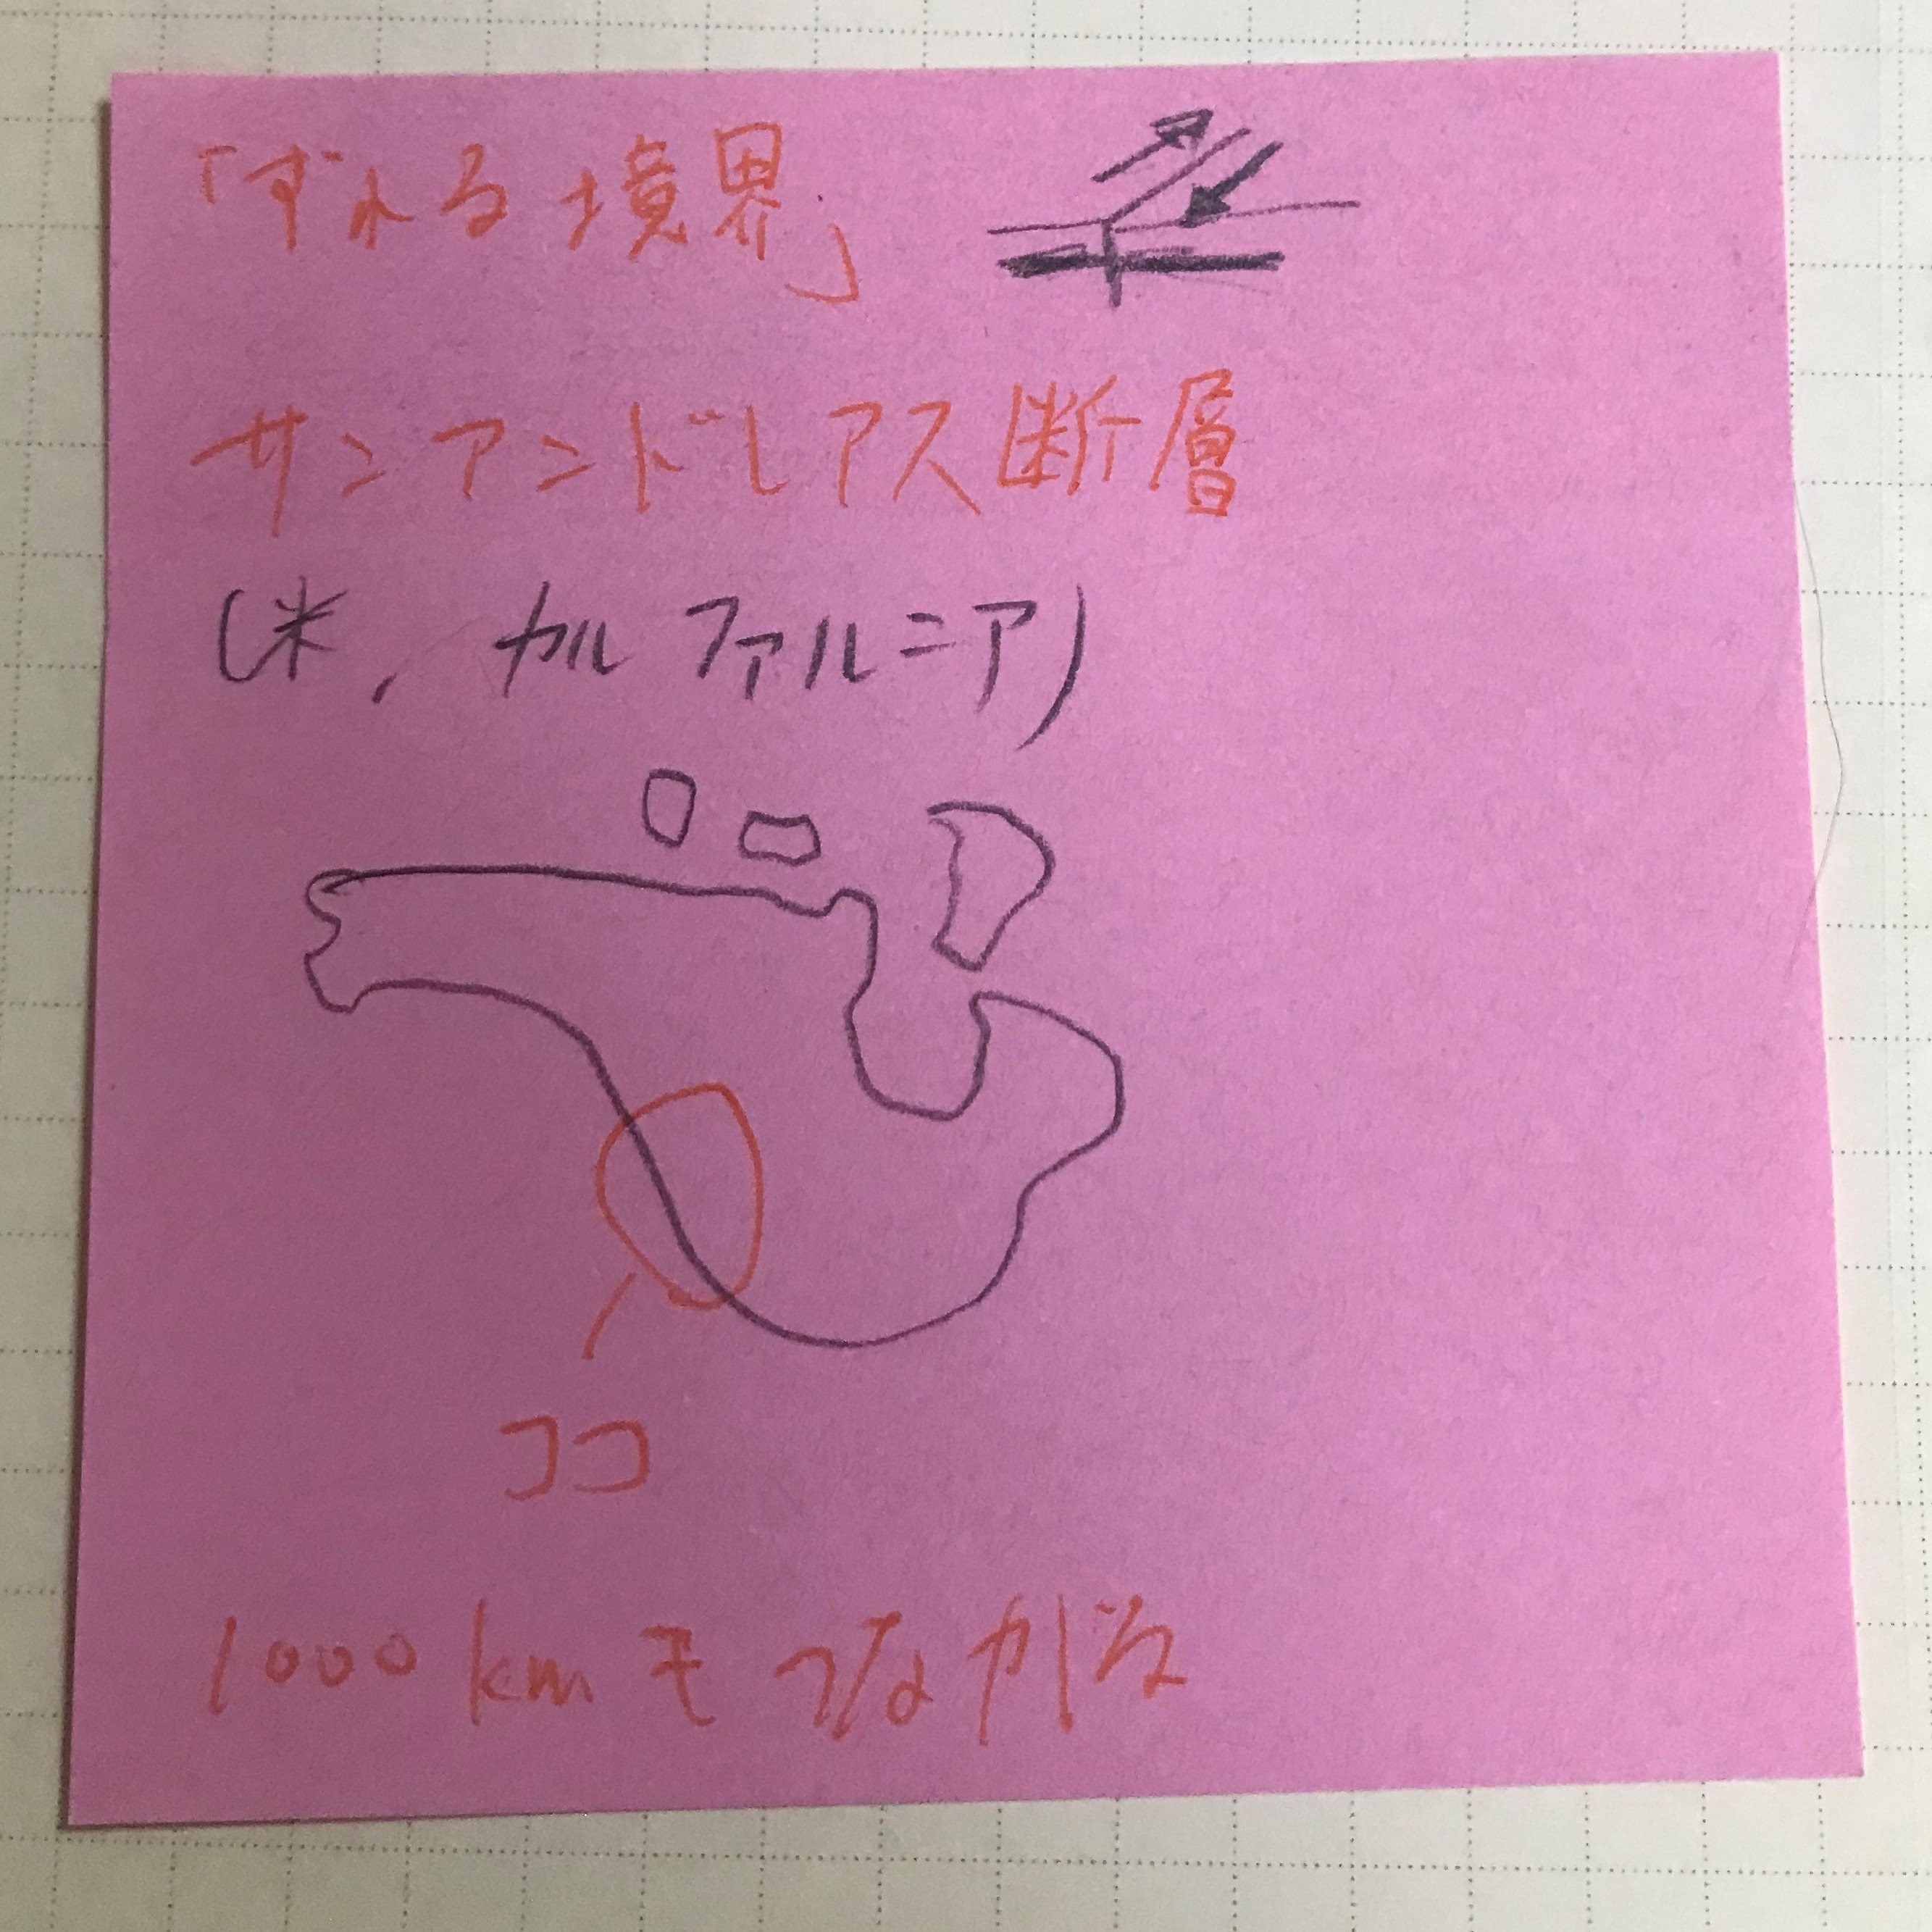 「ずれる境界」
サンアンドレアス断層
(米, カルファルニア)
ココ
1000kmもつながる